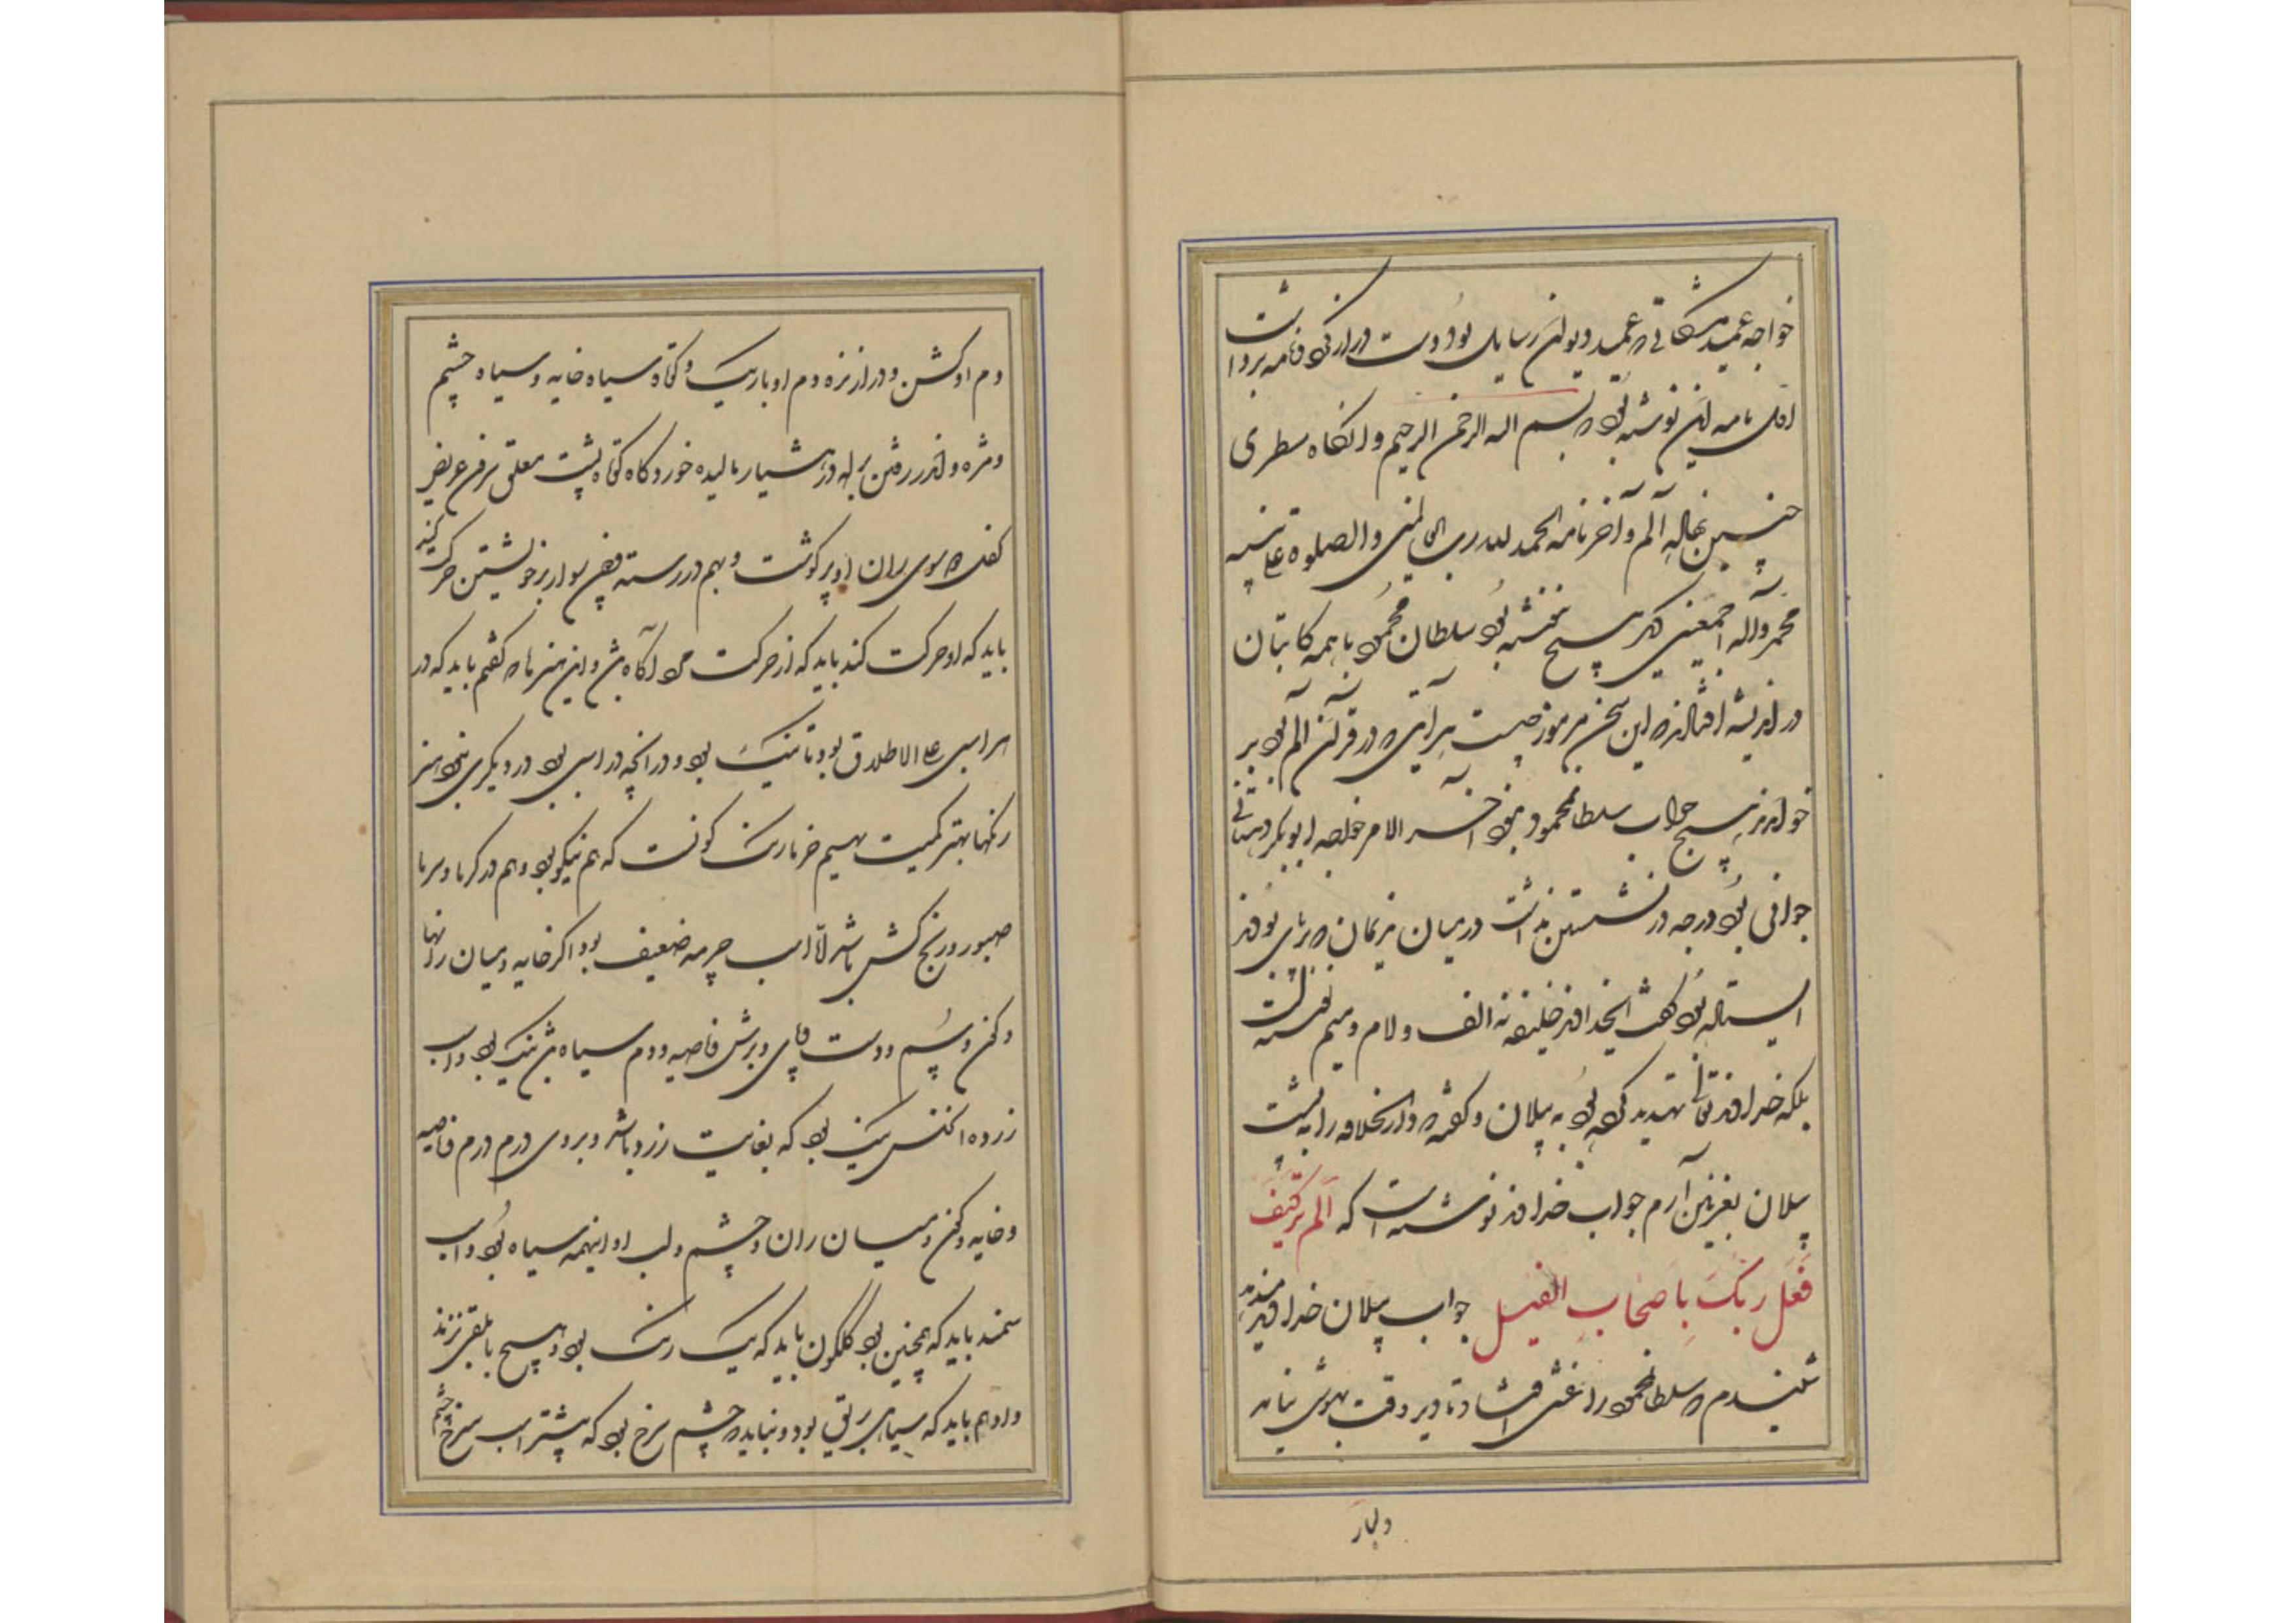 خواجه عمید مشکانی که عمید دیوان رسایل بود دست دراز کرد و نامه برداشت
اول نامه این نوشته بود که بسم الله الرحمن الرحیم و انگاه سطری
چنین نهاله الم و آخر نامه الحمد لله رب العالمین و الصلوه علی نبیه
محمد و آله اجمعین دیگر هیچ ننوشته بود سلطان محمود با همه کاتبان
در اندیشه افتادند که این سخن مرموز چیست هر آیتی که در قرآن الم بود بر
خواندند هیچ جواب سلطان محمود نبود آخر الامر خواجه ابوبکر قهستانی
جوانی بود درجه در نشستن نداشت در میان ندیمان که بر پای بودند
ایستاده بود گفت ایخداوند خلیفه نه الف و لام و میم نفرستاده است
بلکه خداوند تعالی تهدید کرده بود به پیلان و گفته که دار الخلافه را به پشت
پیلان بغزنین آرم جواب خداوند نوشته است که الم تر کیف
فعل ربک باصحاب الفیل جواب پیلان خداوند میدهد
شنیدم که سلطان محمود را غشی افتاد و تا دیر وقت بهوش نیامد
و بسیار
دم او کشن و دراز نزه و دم او باریک و کوتاه و سیاه خایه و سیاه چشم
و مژه و اندر رفتن براه در هشیار مالیده خوردگاه کوتاه پشت معلق سرین عریض
کفل که سوی ران او پر گوشت و بهم در رسته چون سوار بر خویشتن حرکت کند
باید که او حرکت کند باید که از حرکت مرد آگاه باشد و این هنرها که گفتم باید که در
هر اسبی علی الاطلاق بود تا نیک بود و در آنچه در اسبی بود در دیگری نبود بهترین
رنگها بهتر کمیت بهیم خرما رنگ گونست که هم نیکو بود و هم در گرما و سرما
صبور و رنج کش باشد لا اسب چرمه ضعیف بود اگر خایه و میان رانها
و کن و سم و دست و پای و برش و ناصیه و دم سیاه باشد نیک بود و اسب
زرده آنجنس نیک بود که بغایت زرد باشد و بروی درم درم و ناصیه
و خایه و کن و میان ران و چشم و لب او اینهمه سیاه بود و اسب
سمند باید که همچنین بود گلگون باید که یک رنگ بود و هیچ با بلقی نزند
و ادهم باید که سیاهی براق بود و نباید که چشم سرخ بود که بیشتر اسب سرخ چشم